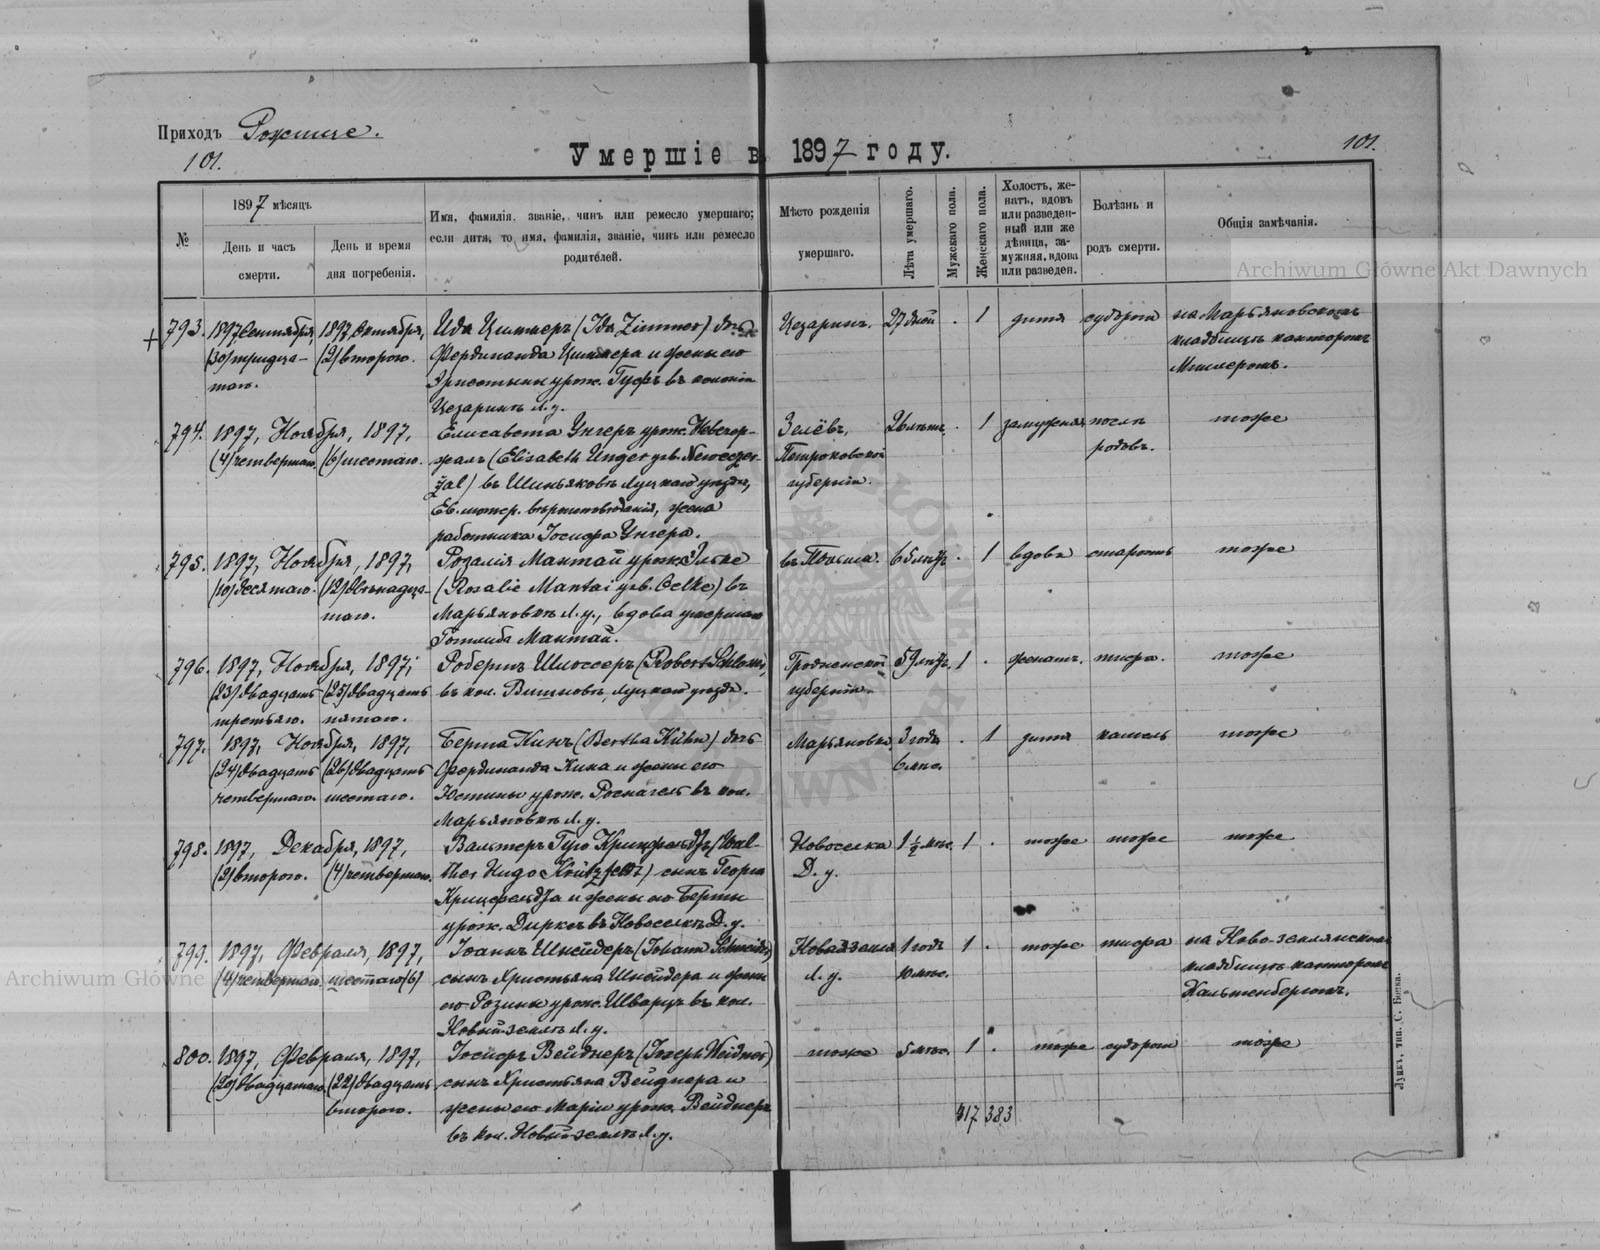 Приходъ Рожище.
101.
Умершіе въ 1897 году.
101.
№
1897 мѣсяцъ
День и часъ смерти.
День и время дня погребенія.
Имя, фамилія, званіе, чинъ или ремесло умершаго;
если дитя, то имя, фамилія, званіе, чинъ или ремесло
родителей.
Мѣсто рожденія
умершаго.
Лѣта умершаго.
Мужскаго пола.
Женскаго пола.
Холостъ, же-
натъ, вдовъ
или разведен-
ный или же
дѣвица, за-
мужняя, вдова
или разведен.
Болѣзнь и
родъ смерти.
Общія замѣчанія.
+ 793. 1897, Сентября, 1897, Октября, Ида Циммеръ (Ida Zimmer) дочь Цезаринъ. 27 дней . 1 дитя судороги на Марьяновскомъ
(30) тридца- (2) второго. Фердинанда Циммера и жены его кладбищѣ канторомъ
таго. урож. въ колоніи Миллеромъ.
Цезаринъ Л. у.
794. 1897, Ноября, 1897, Елисавета Унгеръ урож. 26 лѣтъ . 1 замужняя послѣ тоже
(4) четвертаго. (6) шестаго. (Elisabeth Unger geb. Петроковской родовъ.
въ Луцкаго уѣзда, губерніи.
Ев. лютер. вѣроисповѣданія, жена
работника Іосифа Унгера.
795. 1897, Ноября, 1897, Розалія Мантай урож. Элке въ Польша. 65 лѣтъ . 1 вдова старость тоже
(10) десятаго. (12) двѣнадца- (Rosalie Mantai geb. Oelke) въ
таго. Марьяновкѣ Л. у., вдова умершаго
Готлиба Мантай.
796. 1897, Ноября, 1897, Робертъ Шлоссеръ (Robert Schlosser) Гродненской 59 лѣтъ 1 . женатъ тифа. тоже
(23) двадцать (25) двадцать въ кол. Вишневѣ, Луцкаго уѣзда. губерніи.
третьяго. пятаго.
797. 1897, Ноября, 1897, Берта Кинъ (Bertha Kühn) дочь Марьяновка 3 года . 1 дитя кашель тоже
(24) двадцать (26) двадцать Фердинанда Кина и жены его 6 мѣс.
четвертаго. шестаго. Юстины урож. Роснагель въ кол.
Марьяновкѣ Л. у.
798. 1897, Декабря, 1897, Вальтеръ Гуго Крицфельдъ (Wal- Новоселка 1 ½ мѣс. 1 . тоже тоже тоже
(2) второго. (4) четвертаго. ther Hugo Krützfeldt) сынъ Георга Д. у.
Крицфельда и жены его Берты
урож. Диркъ въ Новоселкѣ Д. у.
799. 1897, Февраля, 1897, Іоаннъ Шнейдеръ (Johann Schneider) Новая земля 1 годъ 1 . тоже тифа на Ново-землянскомъ
(4) четвертаго. шестаго (6) сынъ Христьяна Шнейдера и жены Л. у. 10 мѣс. кладбищѣ канторомъ
его Розины урож. Шварцъ въ кол. Кальтенбергомъ.
Новый землѣ Л. у.
800. 1897, Февраля, 1897, Іосифъ Вейднеръ (Joseph Weidner) тоже 5 мѣс. 1 . тоже судороги тоже
(20) двадцатаго. (22) двадцать сынъ Христьяна Вейднера и
второго. жены его Маріи урож. Вейднеръ
въ кол. Новый землѣ Л. у.
417 383
Луцкъ, тип. С. Бонка.
Archiwum Główne Akt Dawnych
Archiwum Główne Akt Dawnych